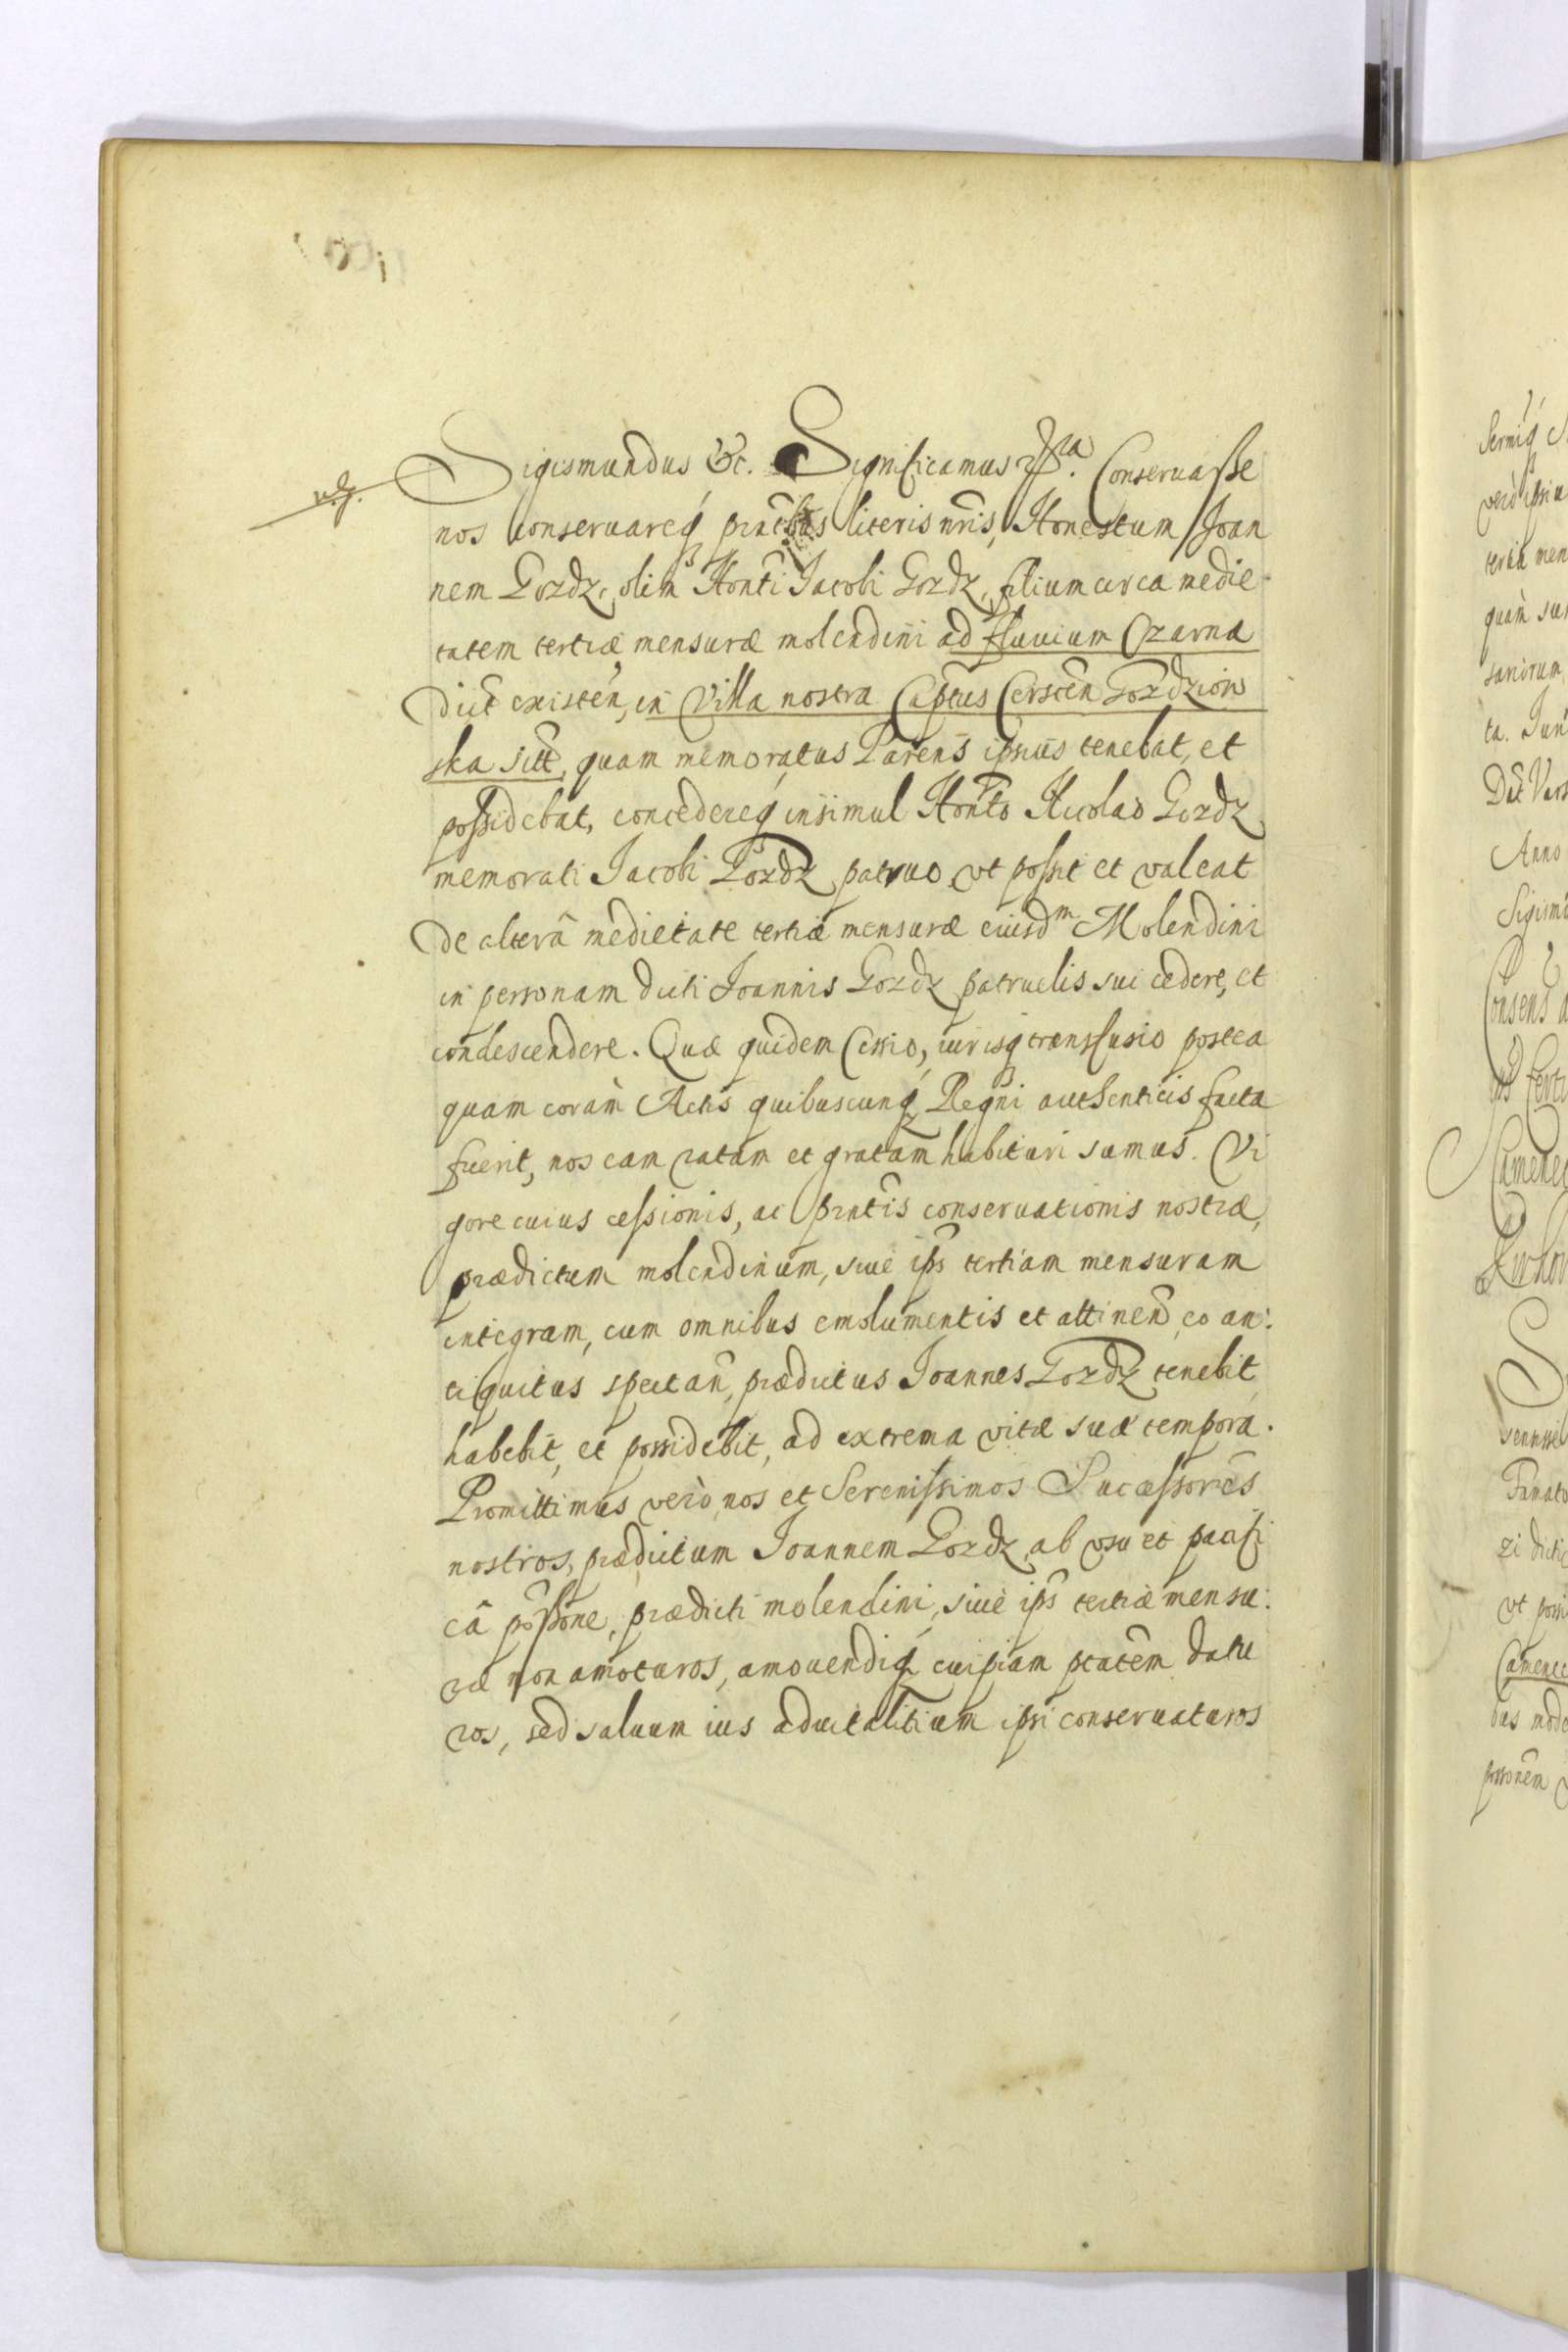 Sigismundus &c. Significamus &c. Conseruasse
nos conseruareq́ pnt̃bus literis nr̃is, Honestum Joan
nem Gozdz, olim Hon̄ti Jacobi Gozdz, filium circa medie
tatem tertiæ mensuræ molendini ad fluuium Czarna
dict̃ existeñ, in Villa nostra Capt̃us Cerstẽn Gozdziow
ska sitt̃, quam memoratus Parens ipsius tenebat, et
possidebat, concedereq́ insimul Hon̄to Nicolao Gozdz
memorati Jacobi Gozdz patruo, vt possit et valeat
de alterâ medietate tertiæ mensuræ eiusdm Molendini
in personam dicti Joannis Gozdz patruelis sui cedere, et
condescendere. Quæ quidem Cessio, iurisq́ transfusio postea
quam coràm Actis quibuscunq́ Regni authenticis facta
fuerit, nos eam ratam et gratam habituri sumus. Vi
gore cuius cessionis, ac pnt̃is conseruationis nostræ,
prædictum molendinum, siue ips̃ tertiam mensuram
integram, cum omnibus emolumentis et attineñ, eo an:
tiquitus spectañ, prædictus Joannes Gozdz tenebit
habebit, et possidebit, ad extrema vitæ suæ tempora.
Promittimus verò, nos et Serenissimos Successores
nostros, prædictum Joannem Gozdz, ab vsu et pacifi
câ poss̃one, prædicti molendini, siuè ips̃ tertiæ mensu:
ræ non amoturos, amouendiq́ cuipiam pt̃atem datu
ros, sed saluum ius aduitalitium ipsi conseruaturos